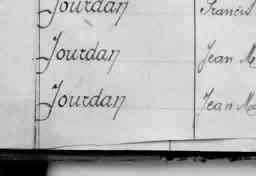 Jourdan Francis
Jourdan Jean M
Jourdan Jean Ma